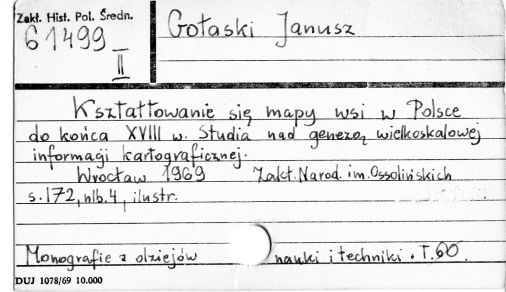 Zakł. Hist. Pol. Średn.
61499
II
Gołaski Janusz
Kształtowanie się mapy wsi w Polsce
do końca XVIII w. Studia nad genezą wielkoskalowej
informacji kartograficznej.
Wrocław 1969 Zakł. Narod. im. Ossolińskich
s. 172, nlb. 4, ilustr.
Monografie z dziejów nauki i techniki. T. 60.
DUJ 1078/69 10.000